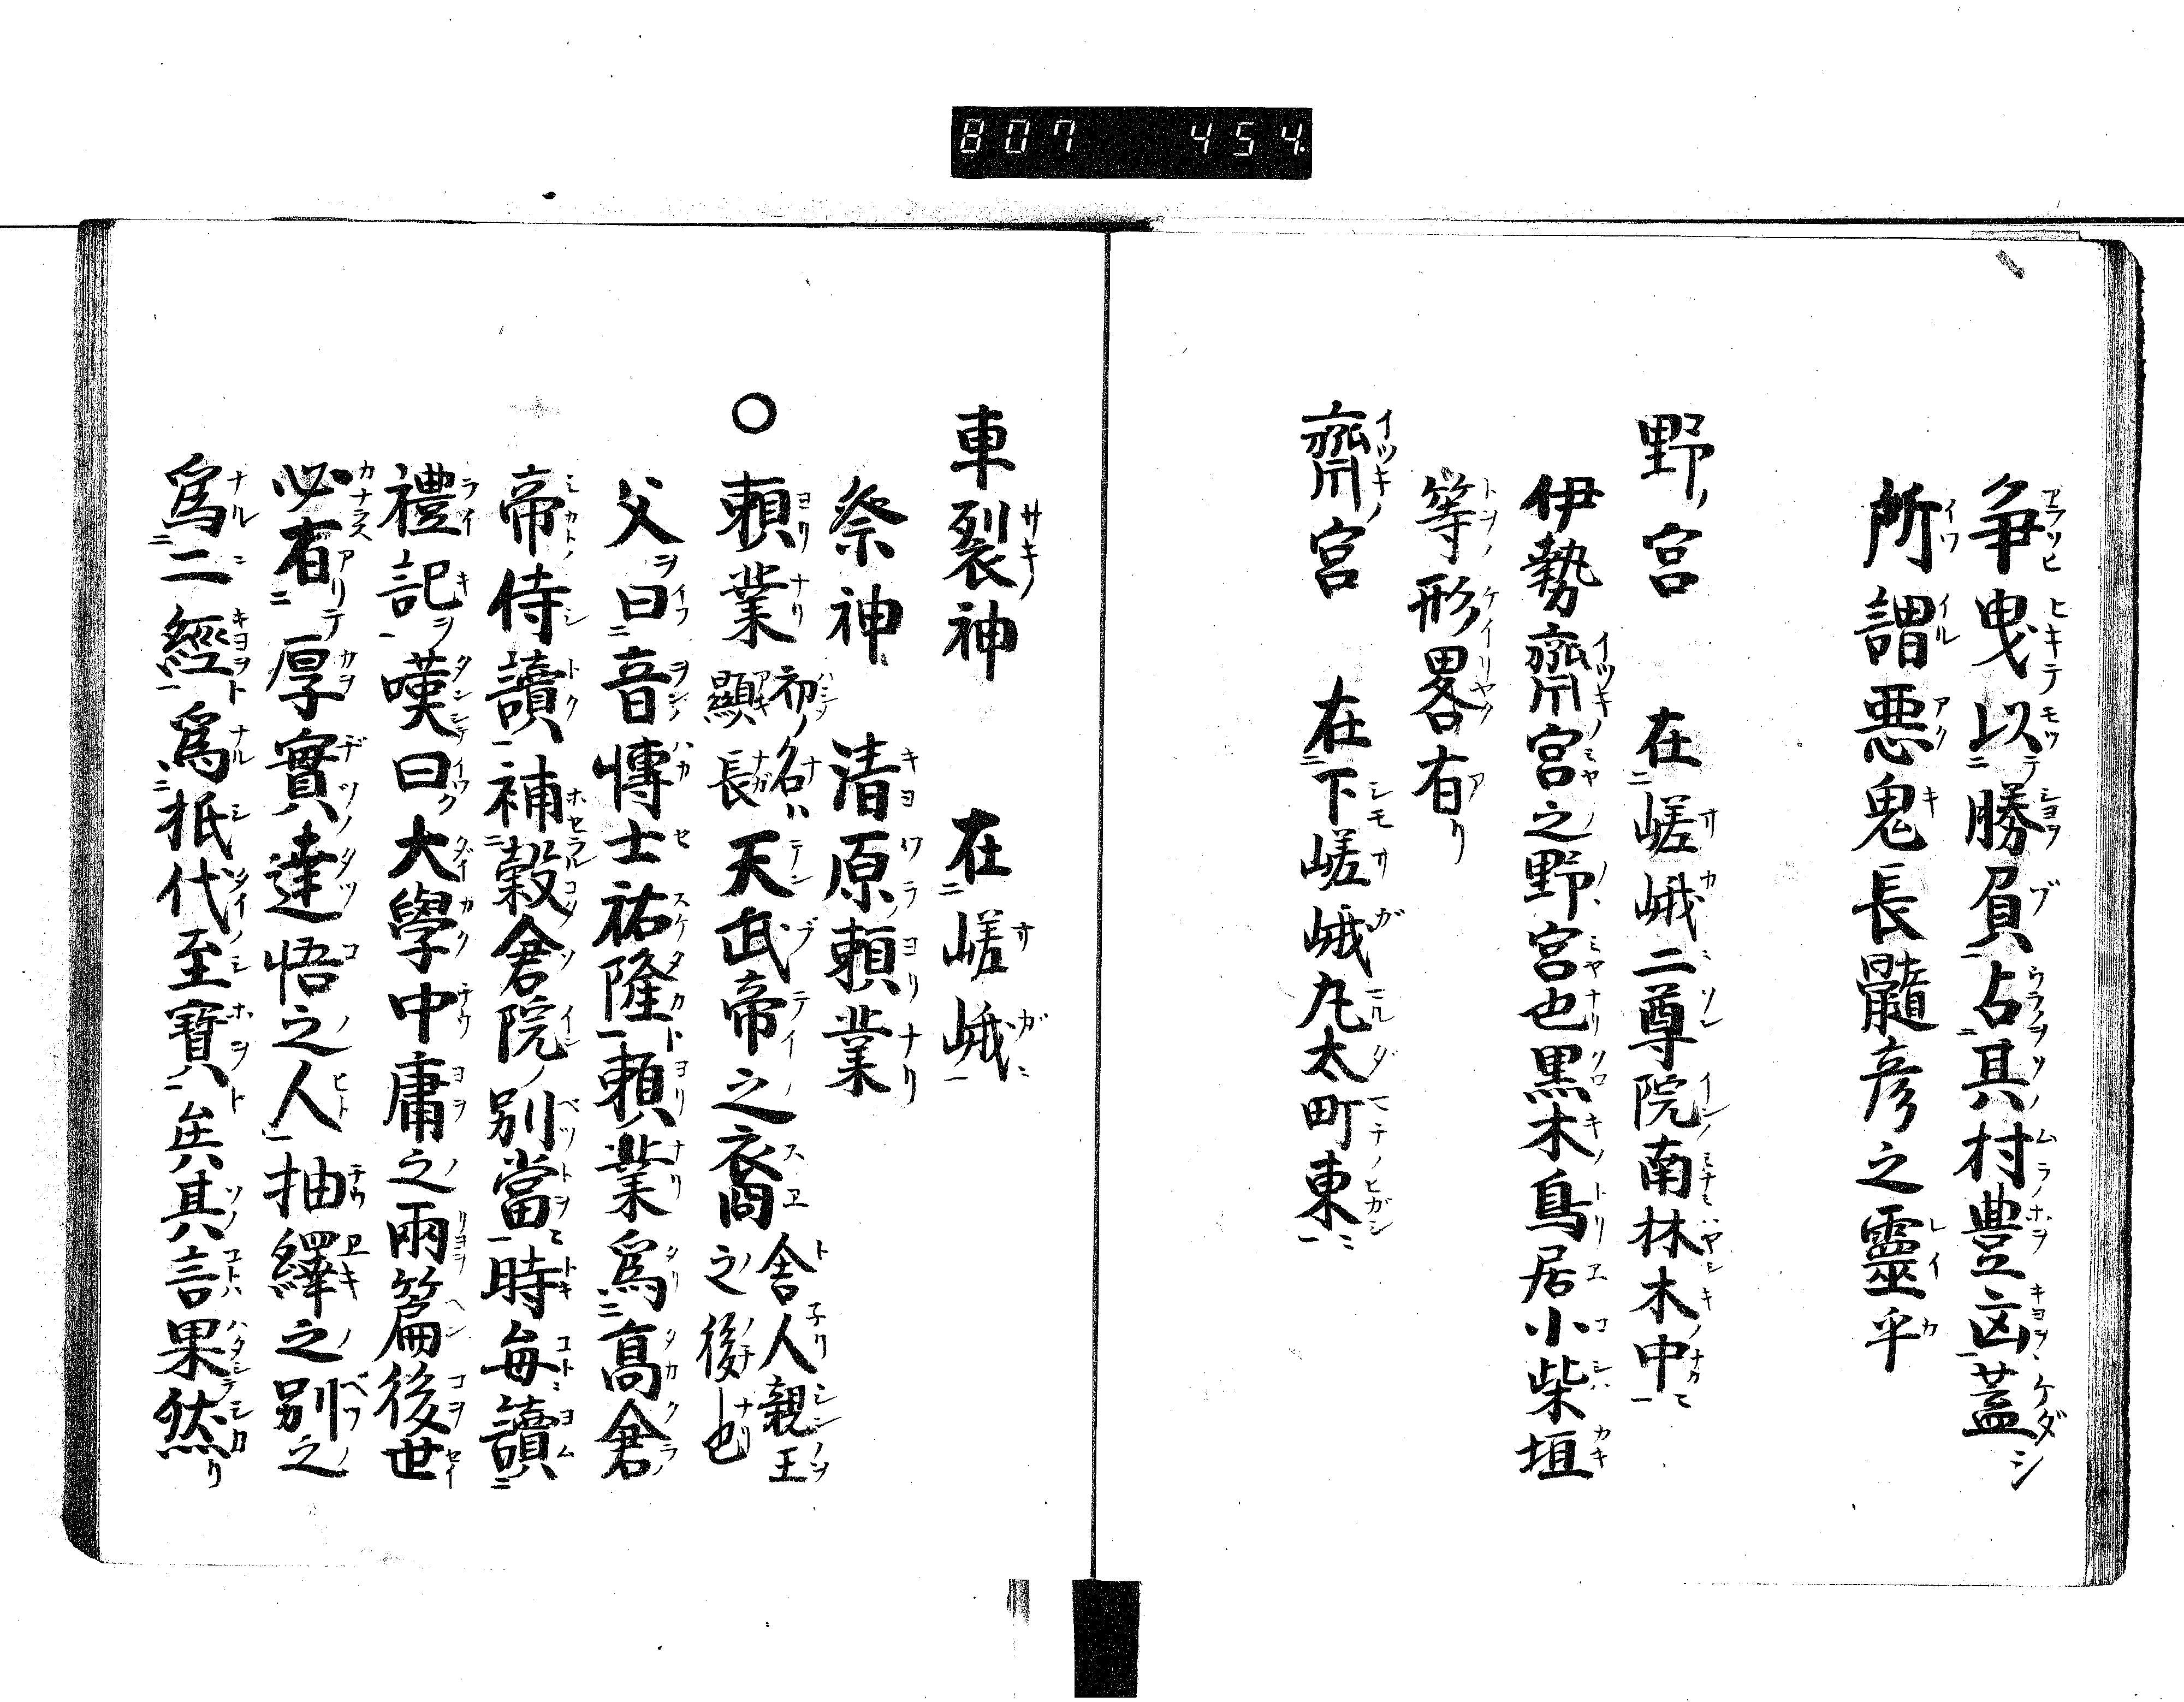 807 454
争曳以勝負占其村豊凶蓋シ
所謂悪鬼長髓彦之靈乎
野ノ宮 在嵯峨二尊院南林木中
伊勢齋宮之野宮也黒木鳥居小柴垣
等形畧有リ
齋宮 在下嵯峨丸太町東
車裂神 在嵯峨
祭神 清原頼業
○頼業 初ノ名ハ顯長 天武帝之裔 舎人親王之後也
父曰音博士祐隆頼業爲高倉
帝侍讀補穀倉院ノ別當時毎讀
禮記嘆曰大學中庸之兩篇後世
必有厚實達悟之人抽繹之別之
爲二經爲抵代至寶矣其言果然リ